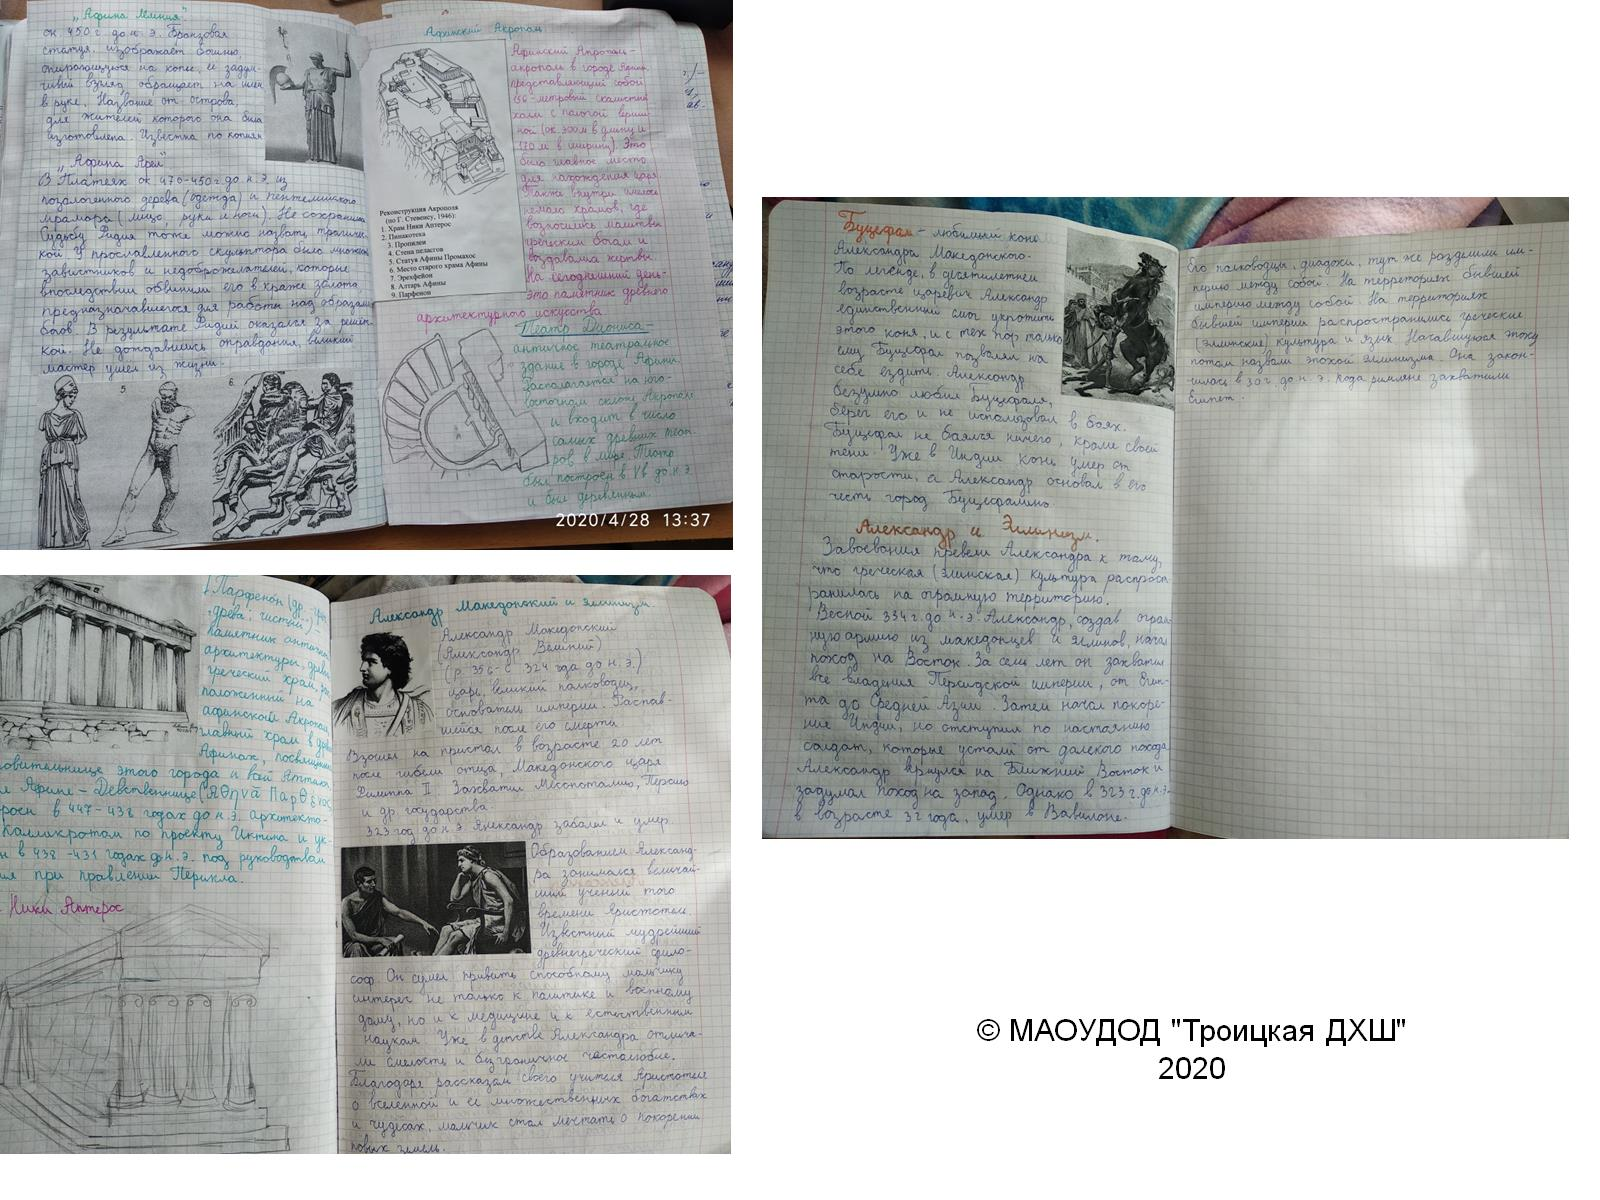 „Афина Лемния"
ок. 450 г. до н. э. Бронзовая
статуя, изображает богиню,
опирающуюся на копье, ее задум-
чивый взгляд, обращен на шлем
в руке. Название от острова,
для жителей которого она была
изготовлена. Известна по копиям
„Афина Арея"
В Платеях ок 470-450 г. до н. э. из
позолоченного дерева (одежда) и пентелийского
мрамора (лицо, руки и ноги). Не сохранилась
Судьбу Фидия тоже можно назвать трагичес-
кой У прославленного скульптора было много
завистников и недоброжелателей, которые
впоследствии обвинили его в краже золота
предназначавшегося для работы над образами
богов. В результате Фидий оказался за решет-
кой. Не дождавшись оправдания, великий
мастер ушел из жизни.
5. 6.
Афинский Акрополь
Реконструкция Акрополя
(по Г. Стевенсу, 1946):
1. Храм Ники Аптерос
2. Пинакотека
3. Пропилеи
4. Стена пеластов
5. Статуя Афины Промахос
6. Место старого храма Афины
7. Эрехфейон
8. Алтарь Афины
9. Парфенон
Афинский Акрополь –
акрополь в городе Афины
представляющий собой
156-метровый скалистый
холм с пологой верши-
ной (ок. 300м в длину и
170 м в ширину). Это
было главное место
для нахождения царя
Также внутри имелось
немало храмов, где
возносились молитвы
греческим богам и
воздавались жертвы.
На сегодняшний день-
это памятник древнего
архитектурного искусства
Театр Диониса –
античное театральное
здание в городе Афины.
Располагается на юго-
восточном склоне Акрополя
и входит в число
самых древних теат-
ров в мире. Театр
был построен в V в до н. э
и был деревянным.
2020/4/28 13:37
Парфенон (др.-греч
дева; чистый) –
памятник античной
архитектуры, древне-
греческий храм, рас-
положенный на
афинском Акрополе,
главный храм в древних
Афинах, посвященный
овительнице этого города и всей Аттики
Афине – Девственнице (Ἀθηνᾶ Παρθένος
в 447-438 годах до н. э. архитекто-
Калликратом по проекту Иктина и ук-
н в 438-431 годах до н. э. под руководством
ия при правлении Перикла.
Ники Аптерос
Александр Македонский и эллинизм.
Александр Македонский
(Александр Великий)
(р. 356-с. 324 года до н. э.)
царь, великий полководец,
основатель империи. Распав-
шейся после его смерти
Взошел на пристол в возрасте 20 лет
после гибели отца, Македонского царя
Филиппа II. Захватил Месопотамию, Персию
и др. государства.
323 год до н. э. Александр заболел и умер.
Образованием Александ-
ра занимался величай-
ший ученый того
времени Аристотель.
Известный мудрейший
древнегреческий фило-
соф. Он сумел привить способному мальчику
интерес не только к политике и военному
делу, но и к медицине и к естественным
наукам. Уже в детстве Александра отлича-
ли смелость и безграничное честолюбие.
Благодаря рассказам своего учителя Аристотеля
о вселенной и ее множественных богатствах
и чудесах, мальчик стал мечтать о покорении
новых земель.
Буцефал – любимый конь
Александра Македонского.
По легенде, в десятилетнем
возрасте царевич Александр
единственный смог укротить
этого коня, и с тех пор только
ему Буцефал позволял на
себе ездить. Александр
безумно любил Буцефала,
берег его и не использовал в боях.
Буцефал не боялся ничего, кроме своей
тени. Уже в Индии конь умер от
старости, а Александр основал в его
честь город Буцефалию.
Александр и Эллинизм.
Завоевания превели Александра к тому,
что греческая (элинская) культура распрост-
ранилась на огромную территорию.
Весной 334 г. до н. э. Александр, создав огром-
ную армию из македонцев и эллинов, начал
поход на Восток. За семь лет он захватил
все владения Персидской империи, от Егип-
та до Средней Азии. Затем начал покоре-
ние Индии, но отступил по настоянию
солдат, которые устали от далекого похода
Александр вернулся на Ближний Восток и
задумал поход на запад. Однако в 323 г. до н. э.
в возрасте 32 года, умер в Вавилоне.
Его полководцы, диадохи, тут же разделили им-
перию между собой. На территориях бывшей
империю между собой На территориях
бывшей империи распространились греческие
(эллинские) культура и язык Начавшуюся эпоху
потом назвали эпохой эллинизма. Она закон-
чилась в 30 г. до н. э. Когда римляне захватили
Египет.
© МАОУДОД "Троицкая ДХШ"
2020